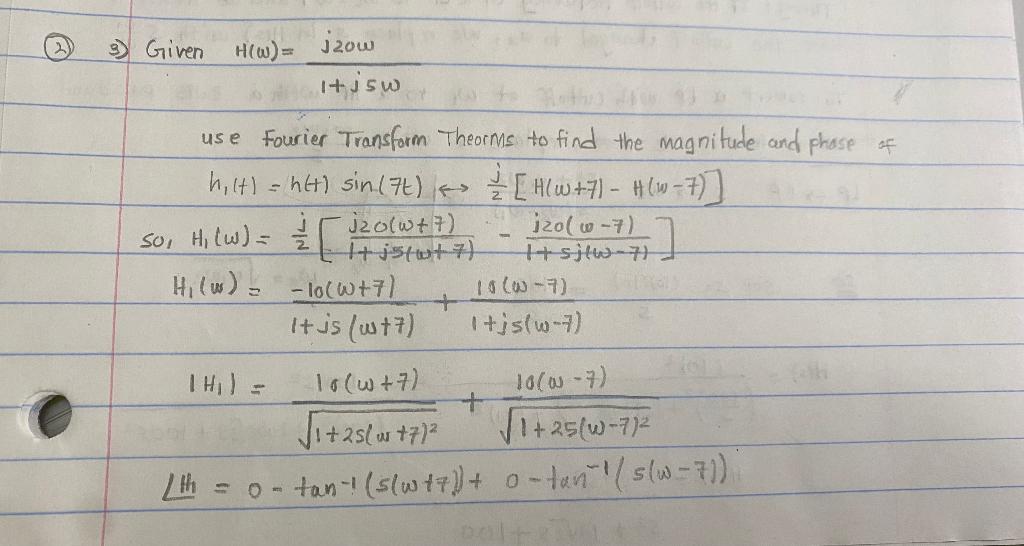 ② 3) Given H(ω) = j20ω / 1+j5ω
use Fourier Transform Theorms to find the magnitude and phase of
h₁(t) = h(t) sin(7t) ↔ j/2 [H(ω+7) - H(ω-7)]
so, H₁(ω) = j/2 [ j20(ω+7) / 1+j5(ω+7) - j20(ω-7) / 1+5j(ω-7) ]
H₁(ω) = -10(ω+7) / 1+j5(ω+7) + 10(ω-7) / 1+j5(ω-7)
|H₁| = 10(ω+7) / √1+25(ω+7)² + 10(ω-7) / √1+25(ω-7)²
∠H₁ = 0 - tan⁻¹(5(ω+7)) + 0 - tan⁻¹(5(ω-7))